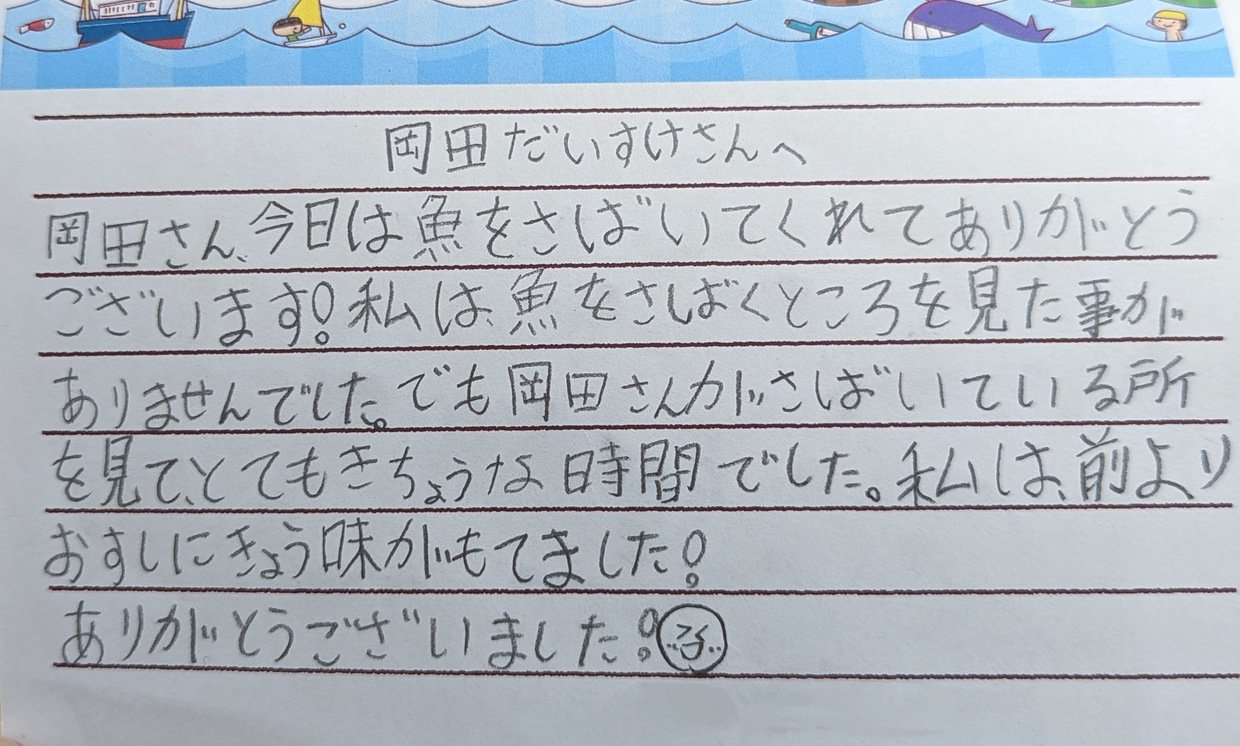 岡田だいすけさんへ
岡田さん、今日は魚をさばいてくれてありがとう
ございます!私は、魚をさばくところを見た事が
ありませんでした。でも岡田さんがさばいている所
を見て、とてもきちょうな時間でした。私は、前より
おすしにきょう味がもてました!
ありがとうございました!